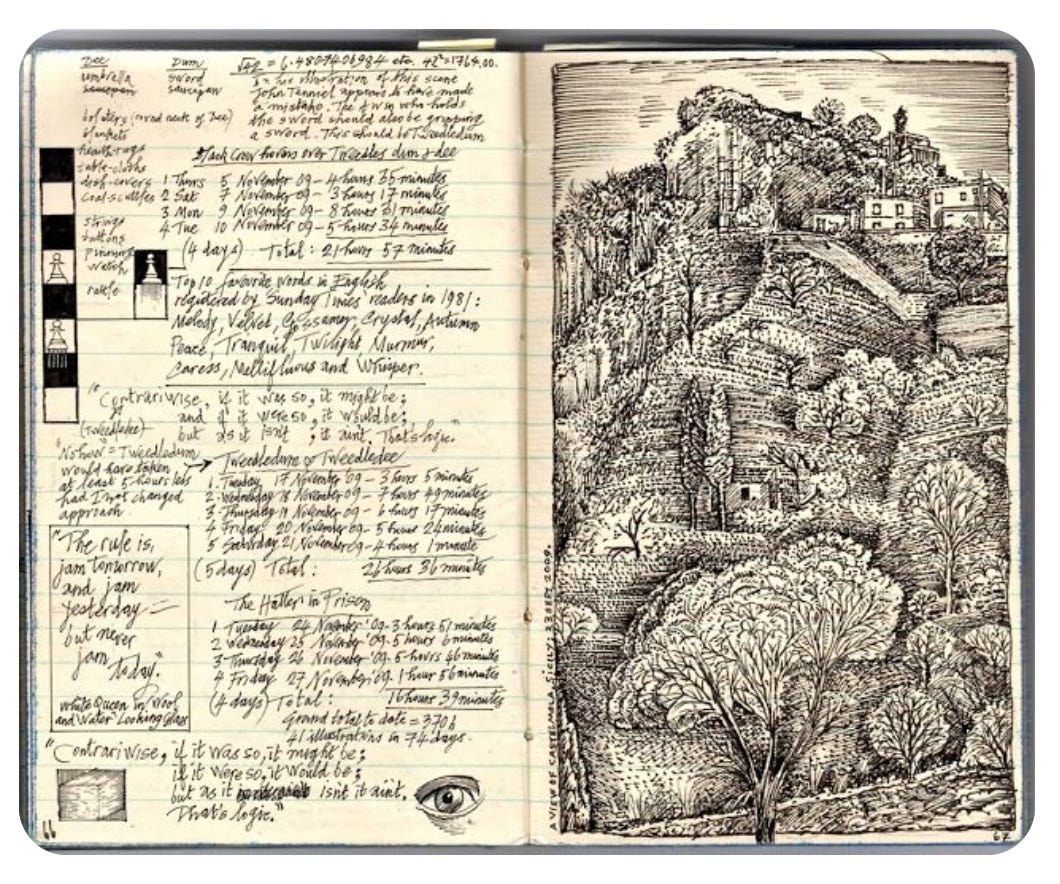 Dee Dum √42 = 6.4807406984 etc. 42²=1764.00.
umbrella sword In his illustration of this scene
saucepan saucepan John Tenniel appears to have made
a mistake. The twin who holds
bolsters (round neck of Dee) the sword should also be gripping
blankets a sword. This should be Tweedledum
hearth-rugs Jack Crow hovers over Tweedles dum & dee
table-cloths
dish-covers 1 Thurs 5 November 09 - 4 hours 35 minutes
coal-scuttles 2 Sat 7 November 09 - 3 hours 17 minutes
3 Mon 9 November 09 - 8 hours 31 minutes
strings 4 Tue 10 November 09 - 5 hours 34 minutes
buttons
(4 days) Total: 21 hours 57 minutes
watch
rattle
Top 10 favourite words in English
registered by Sunday Times readers in 1981:
Melody, Velvet, Gossamer, Crystal, Autumn
Peace, Tranquil, Twilight Murmur,
Caress, Mellifluous and Whisper.
"Contrariwise, if it was so, it might be;
and if it were so, it would be;
(Tweedledee) but as it isn't, it ain't. That's logic."
"Nohow" = Tweedledum
would have taken
at least 5 hours less
had I not changed
approach.
Tweedledum & Tweedledee
1. Tuesday 17 November 09 - 3 hours 5 minutes
2 Wednesday 18 November 09 - 7 hours 49 minutes
3 Thursday 19 November 09 - 6 hours 17 minutes
4 Friday 20 November 09 - 5 hours 24 minutes
5 Saturday 21 November 09 - 4 hours 1 minute
(5 days) Total: 26 hours 36 minutes
"The rule is,
jam tomorrow,
and jam
yesterday -
but never
jam today."
White Queen in Wool
and Water Looking Glass
The Hatter in Prison
1 Tuesday 24 November '09 - 3 hours 51 minutes
2 Wednesday 25 November '09 - 5 hours 6 minutes
3 Thursday 26 November '09 - 5 hours 46 minutes
4 Friday 27 November '09 1 hour 56 minutes
(4 days) Total: 16 hours 39 minutes
Grand total to date = 370h
41 illustrations in 74 days.
"Contrariwise, if it was so, it might be;
if it were so, it would be;
but as it isn't it ain't.
That's logic."
66
A VIEW OF CASTELMOLA, SICILY: 23 SEPT 2009.
67